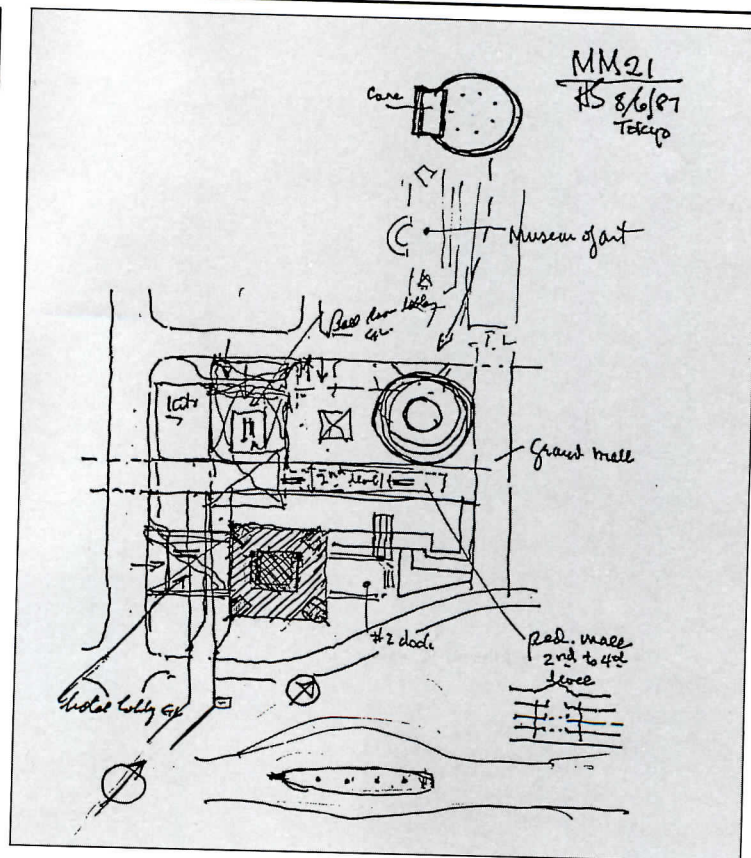 MM21
HS 8/6/87
Tokyo
Core
Museum of art
Ball room lobby
T. L
Grand mall
2nd level
#2 dock
ped. mall
2nd to 4th
level
hotel lobby